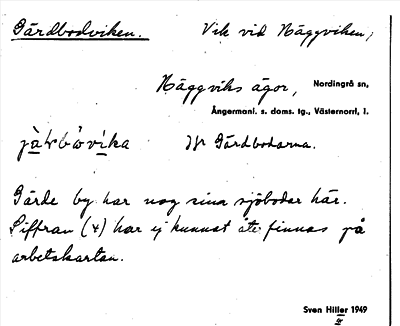 Gärdbodviken. Vik vid Näggviken,
Näggviks ägor, Nordingrå sn,
Ångermanl. s. doms. tg., Västernorrl. l.
Jfr Gärdbodarna.
Gärde by har nog sina sjöbodar här.
Siffran (4) har ej kunnat åter finnas på
arbetskartan.
Sven Hiller 1949